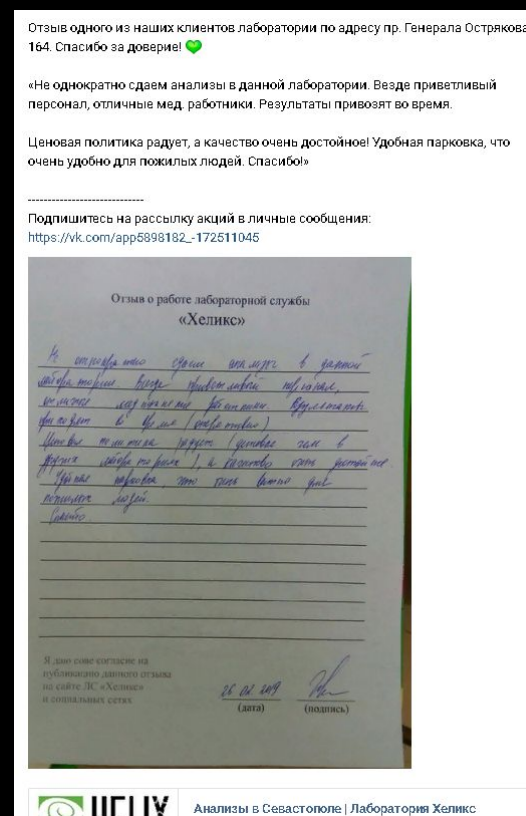 Отзыв одного из наших клиентов лаборатории по адресу пр. Генерала Острякова
164. Спасибо за доверие! 💚
«Не однократно сдаем анализы в данной лаборатории. Везде приветливый
персонал, отличные мед. работники. Результаты привозят во время.
Ценовая политика радует, а качество очень достойное! Удобная парковка, что
очень удобно для пожилых людей. Спасибо!»
-----------------------------
Подпишитесь на рассылку акций в личные сообщения:
https://vk.com/app5898182_-172511045
Отзыв о работе лабораторной службы
«Хеликс»
Не однократно сдаем анализы в данной
лаборатории Везде приветливый персонал,
отличные медицинские работники. Результаты
привозят во время (оперативно)
Ценовая политика радует (дешевле чем в
других лабораториях), а качество очень достойное
Удобная парковка, что очень важно для
пожилых людей.
Спасибо.
Я даю свое согласие на
публикацию данного отзыва
на сайте ЛС «Хеликс»
и социальных сетях
26.02.2019
(дата) (подпись)
HELIX
Анализы в Севастополе | Лаборатория Хеликс